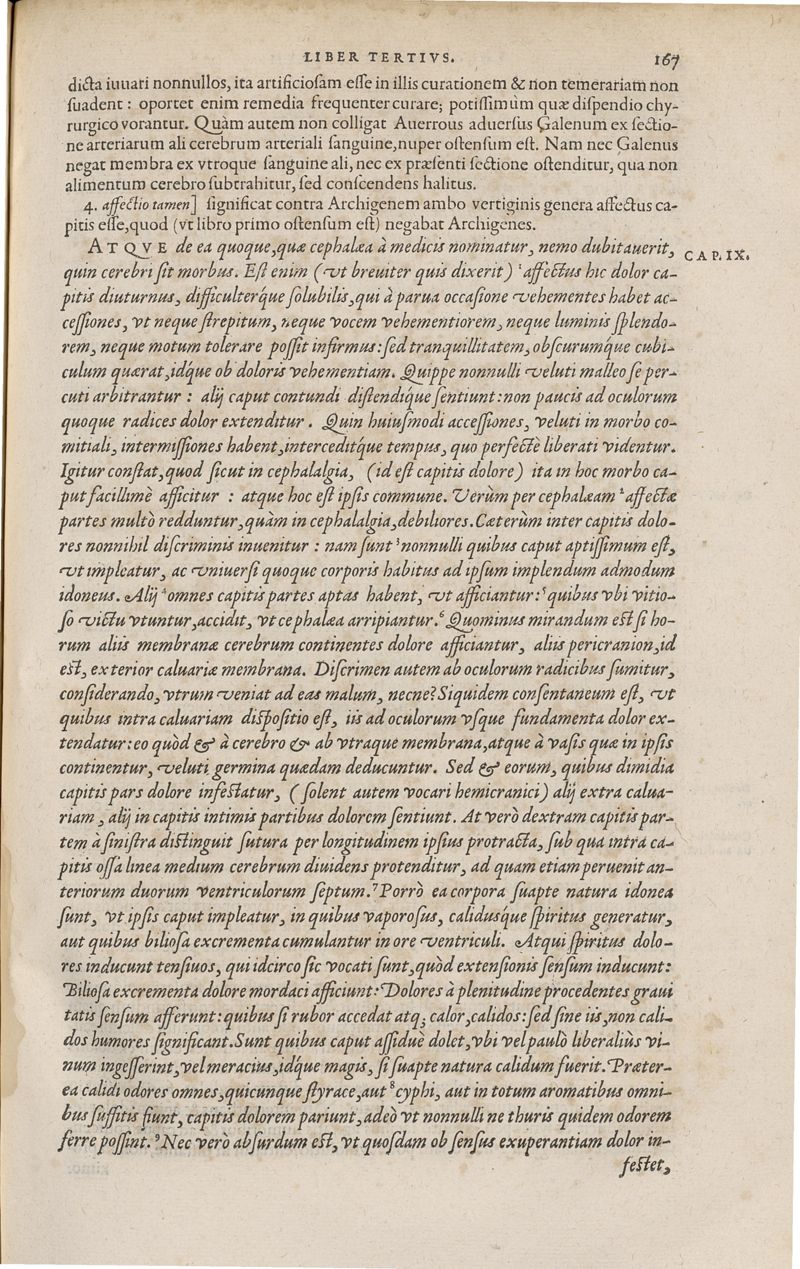 LIBER TERTIVS. 167
dicta iuuari nonnullos, ita artificiosam esse in illis curationem & non temerariam non
suadent: oportet enim remedia frequenter curare; potissimùm quæ dispendio chy-
rurgico vorantur. Quàm autem non colligat Auerrous aduersus Galenum ex sectio-
ne arteriarum ali cerebrum arteriali sanguine, nuper ostensum est. Nam nec Galenus
negat membra ex vtroque sanguine ali, nec ex præsenti sectione ostenditur, qua non
alimentum cerebro subtrahitur, sed conscendens halitus.
4. affectio tamen] significat contra Archigenem ambo vertiginis genera affectus ca-
pitis esse, quod (vt libro primo ostensum est) negabat Archigenes.
ATQVE de ea quoque, quæ cephalæa à medicis nominatur, nemo dubitauerit,
CAP. IX.
quin cerebri sit morbus. Est enim (vt breuiter quis dixerit) ¹affectus hic dolor ca-
pitis diuturnus, difficulterq́ue solubilis, qui à parua occasione vehementes habet ac-
cessiones, vt neque strepitum, neque vocem vehementiorem, neque luminis splendo-
rem, neque motum tolerare possit infirmus: sed tranquillitatem, obscurumq́ue cubi-
culum quærat, idq́ue ob doloris vehementiam. Quippe nonnulli veluti malleo se per-
cuti arbitrantur : alij caput contundi distendiq́ue sentiunt: non paucis ad oculorum
quoque radices dolor extenditur. Quin huiusmodi accessiones, veluti in morbo co-
mitiali, intermissiones habent, interceditq́ue tempus, quo perfectè liberati videntur.
Igitur constat, quod sicut in cephalalgia, (id est capitis dolore) ita in hoc morbo ca-
put facillimè afficitur : atque hoc est ipsis commune. Verùm per cephalæam ²affectæ
partes multò redduntur, quàm in cephalalgia, debiliores. Cæterùm inter capitis dolo-
res nonnihil discriminis inuenitur : nam sunt ³nonnulli quibus caput aptissimum est,
vt impleatur, ac vniuersi quoque corporis habitus ad ipsum implendum admodum
idoneus. Alij ⁴omnes capitis partes aptas habent, vt afficiantur: ⁵quibus vbi vitio-
so victu vtuntur, accidit, vt cephalæa arripiantur. ⁶Quominus mirandum est si ho-
rum aliis membranæ cerebrum continentes dolore afficiantur, aliis pericranion, id
est, exterior caluariæ membrana. Discrimen autem ab oculorum radicibus sumitur,
considerando, vtrum veniat ad eas malum, necne? Siquidem consentaneum est, vt
quibus intra caluariam dispositio est, iis ad oculorum vsque fundamenta dolor ex-
tendatur: eo quòd & à cerebro & ab vtraque membrana, atque à vasis quæ in ipsis
continentur, veluti germina quædam deducuntur. Sed & eorum, quibus dimidia
capitis pars dolore infestatur, (solent autem vocari hemicranici) alij extra calua-
riam, alij in capitis intimis partibus dolorem sentiunt. At verò dextram capitis par-
tem à sinistra distinguit sutura per longitudinem ipsius protracta, sub qua intra ca-
pitis ossa linea medium cerebrum diuidens protenditur, ad quam etiam peruenit an-
teriorum duorum ventriculorum septum. ⁷Porrò ea corpora suapte natura idonea
sunt, vt ipsis caput impleatur, in quibus vaporosus, calidusq́ue spiritus generatur,
aut quibus biliosa excrementa cumulantur in ore ventriculi. Atqui spiritus dolo-
res inducunt tensiuos, qui idcirco sic vocati sunt, quòd extensionis sensum inducunt:
Biliosa excrementa dolore mordaci afficiunt: Dolores à plenitudine procedentes graui
tatis sensum afferunt: quibus si rubor accedat atq; calor, calidos: sed sine iis, non cali-
dos humores significant. Sunt quibus caput assiduè dolet, vbi vel paulò liberaliùs vi-
num ingesserint, vel meracius, idq́ue magis, si suapte natura calidum fuerit. Præter-
ea calidi odores omnes, quicunque styrace, aut ⁸cyphi, aut in totum aromatibus omni-
bus suffitis fiunt, capitis dolorem pariunt, adeò vt nonnulli ne thuris quidem odorem
ferre possint. ⁹Nec verò absurdum est, vt quosdam ob sensus exuperantiam dolor in-
festet,